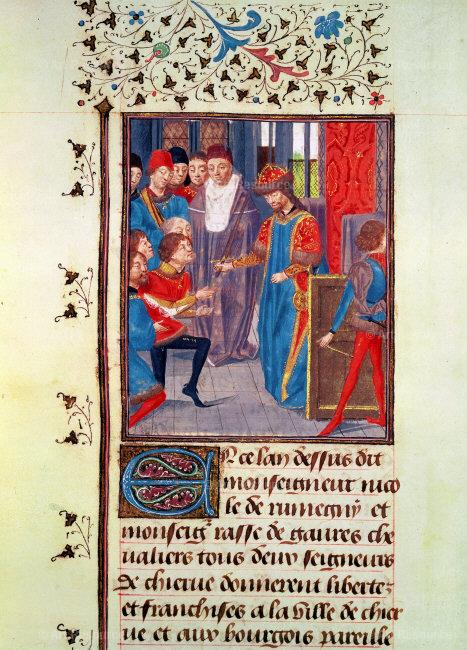 En ce lan dessus dit
monseigneur nico
le de rumegny et
monseigr rasse de gaures che
ualiers tous deux seigneurs
de chierue donnerent libertez
et franchises a la ville de chier
ue et aux bourgois pareille